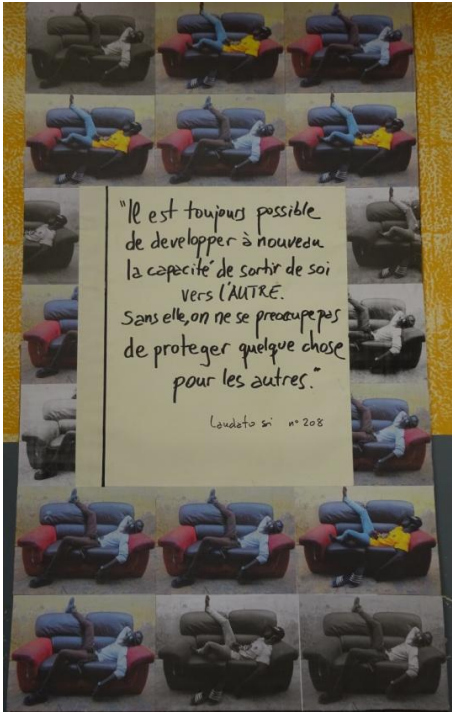 "Il est toujours possible
de developper à nouveau
la capacité de sortir de soi
vers l'AUTRE.
Sans elle, on ne se preoccupe pas
de proteger quelque chose
pour les autres."
Laudato si n° 208